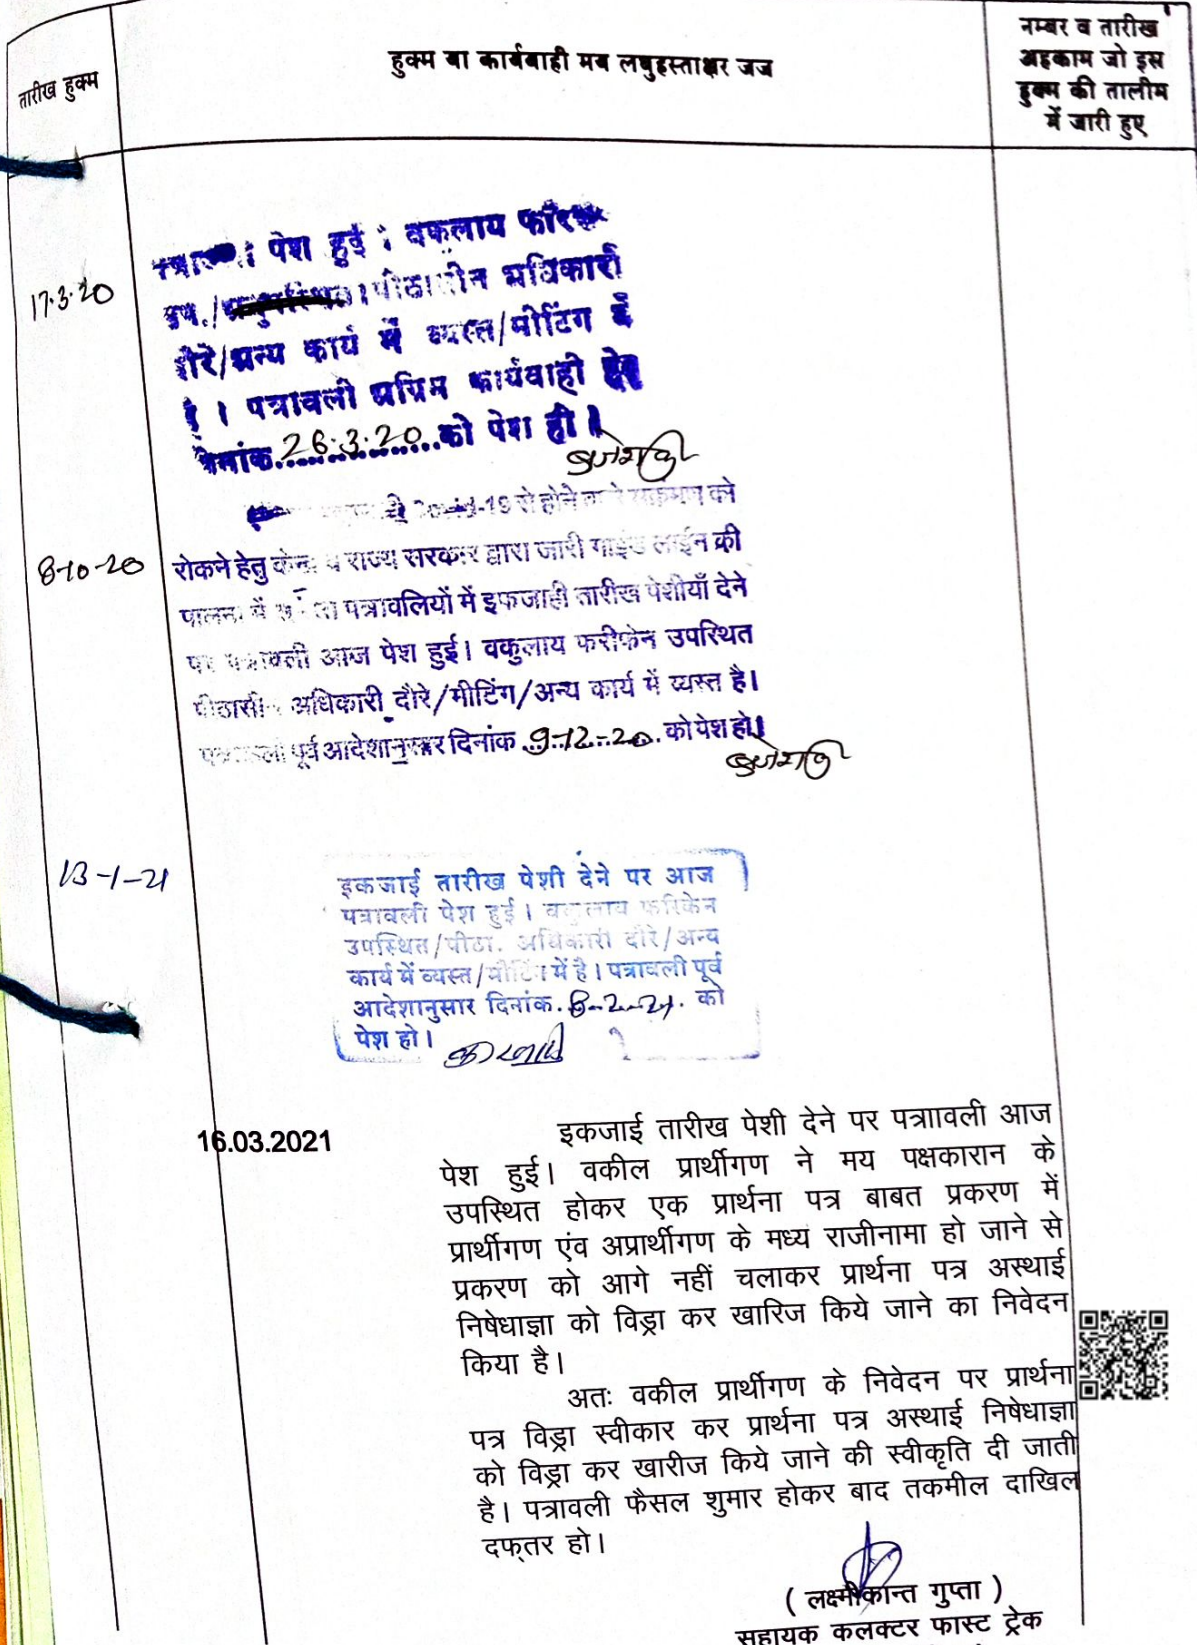 तारीख हुक्म
हुक्म या कार्यवाही मय लघुहस्ताक्षर जज
नम्बर व तारीख
अहकाम जो इस
हुक्म की तालीम
में जारी हुए
17.3.20
पेश हुई । वकलाय
उप./ अधिकारी
दौरे/अन्य कार्य में व्यस्त/मीटिंग में
है । पत्रावली अग्रिम कार्यवाही हेतु
26.3.20 को पेश हो।
8-10-20
-19 से होने वाले संक्रमण को
रोकने हेतु केन्द्र व राज्य सरकार द्वारा जारी गाईड लाईन की
पालना में पत्रावलियों में इकजाही तारीख पेशीयाँ देने
पर पत्रावली आज पेश हुई। वकुलाय फरीकेन उपस्थित
पीठासीन अधिकारी दौरे/मीटिंग/अन्य कार्य में व्यस्त है।
पूर्व आदेशानुसार दिनांक 9-12-20 को पेश हो।
13-1-21
इकजाई तारीख पेशी देने पर आज
पत्रावली पेश हुई। वकुलाय फरिकेन
उपस्थित/पीठा. अधिकारी दौरे/अन्य
कार्य में व्यस्त/मीटिंग में है। पत्रावली पूर्व
आदेशानुसार दिनांक. 8-2-21. को
पेश हो।
16.03.2021
इकजाई तारीख पेशी देने पर पत्राावली आज
पेश हुई। वकील प्रार्थीगण ने मय पक्षकारान के
उपस्थित होकर एक प्रार्थना पत्र बाबत प्रकरण में
प्रार्थीगण एंव अप्रार्थीगण के मध्य राजीनामा हो जाने से
प्रकरण को आगे नहीं चलाकर प्रार्थना पत्र अस्थाई
निषेधाज्ञा को विड्रा कर खारिज किये जाने का निवेदन
किया है।
अतः वकील प्रार्थीगण के निवेदन पर प्रार्थना
पत्र विड्रा स्वीकार कर प्रार्थना पत्र अस्थाई निषेधाज्ञा
को विड्रा कर खारीज किये जाने की स्वीकृति दी जाती
है। पत्रावली फैसल शुमार होकर बाद तकमील दाखिल
दफ्तर हो।
( लक्ष्मीकान्त गुप्ता )
सहायक कलक्टर फास्ट ट्रेक